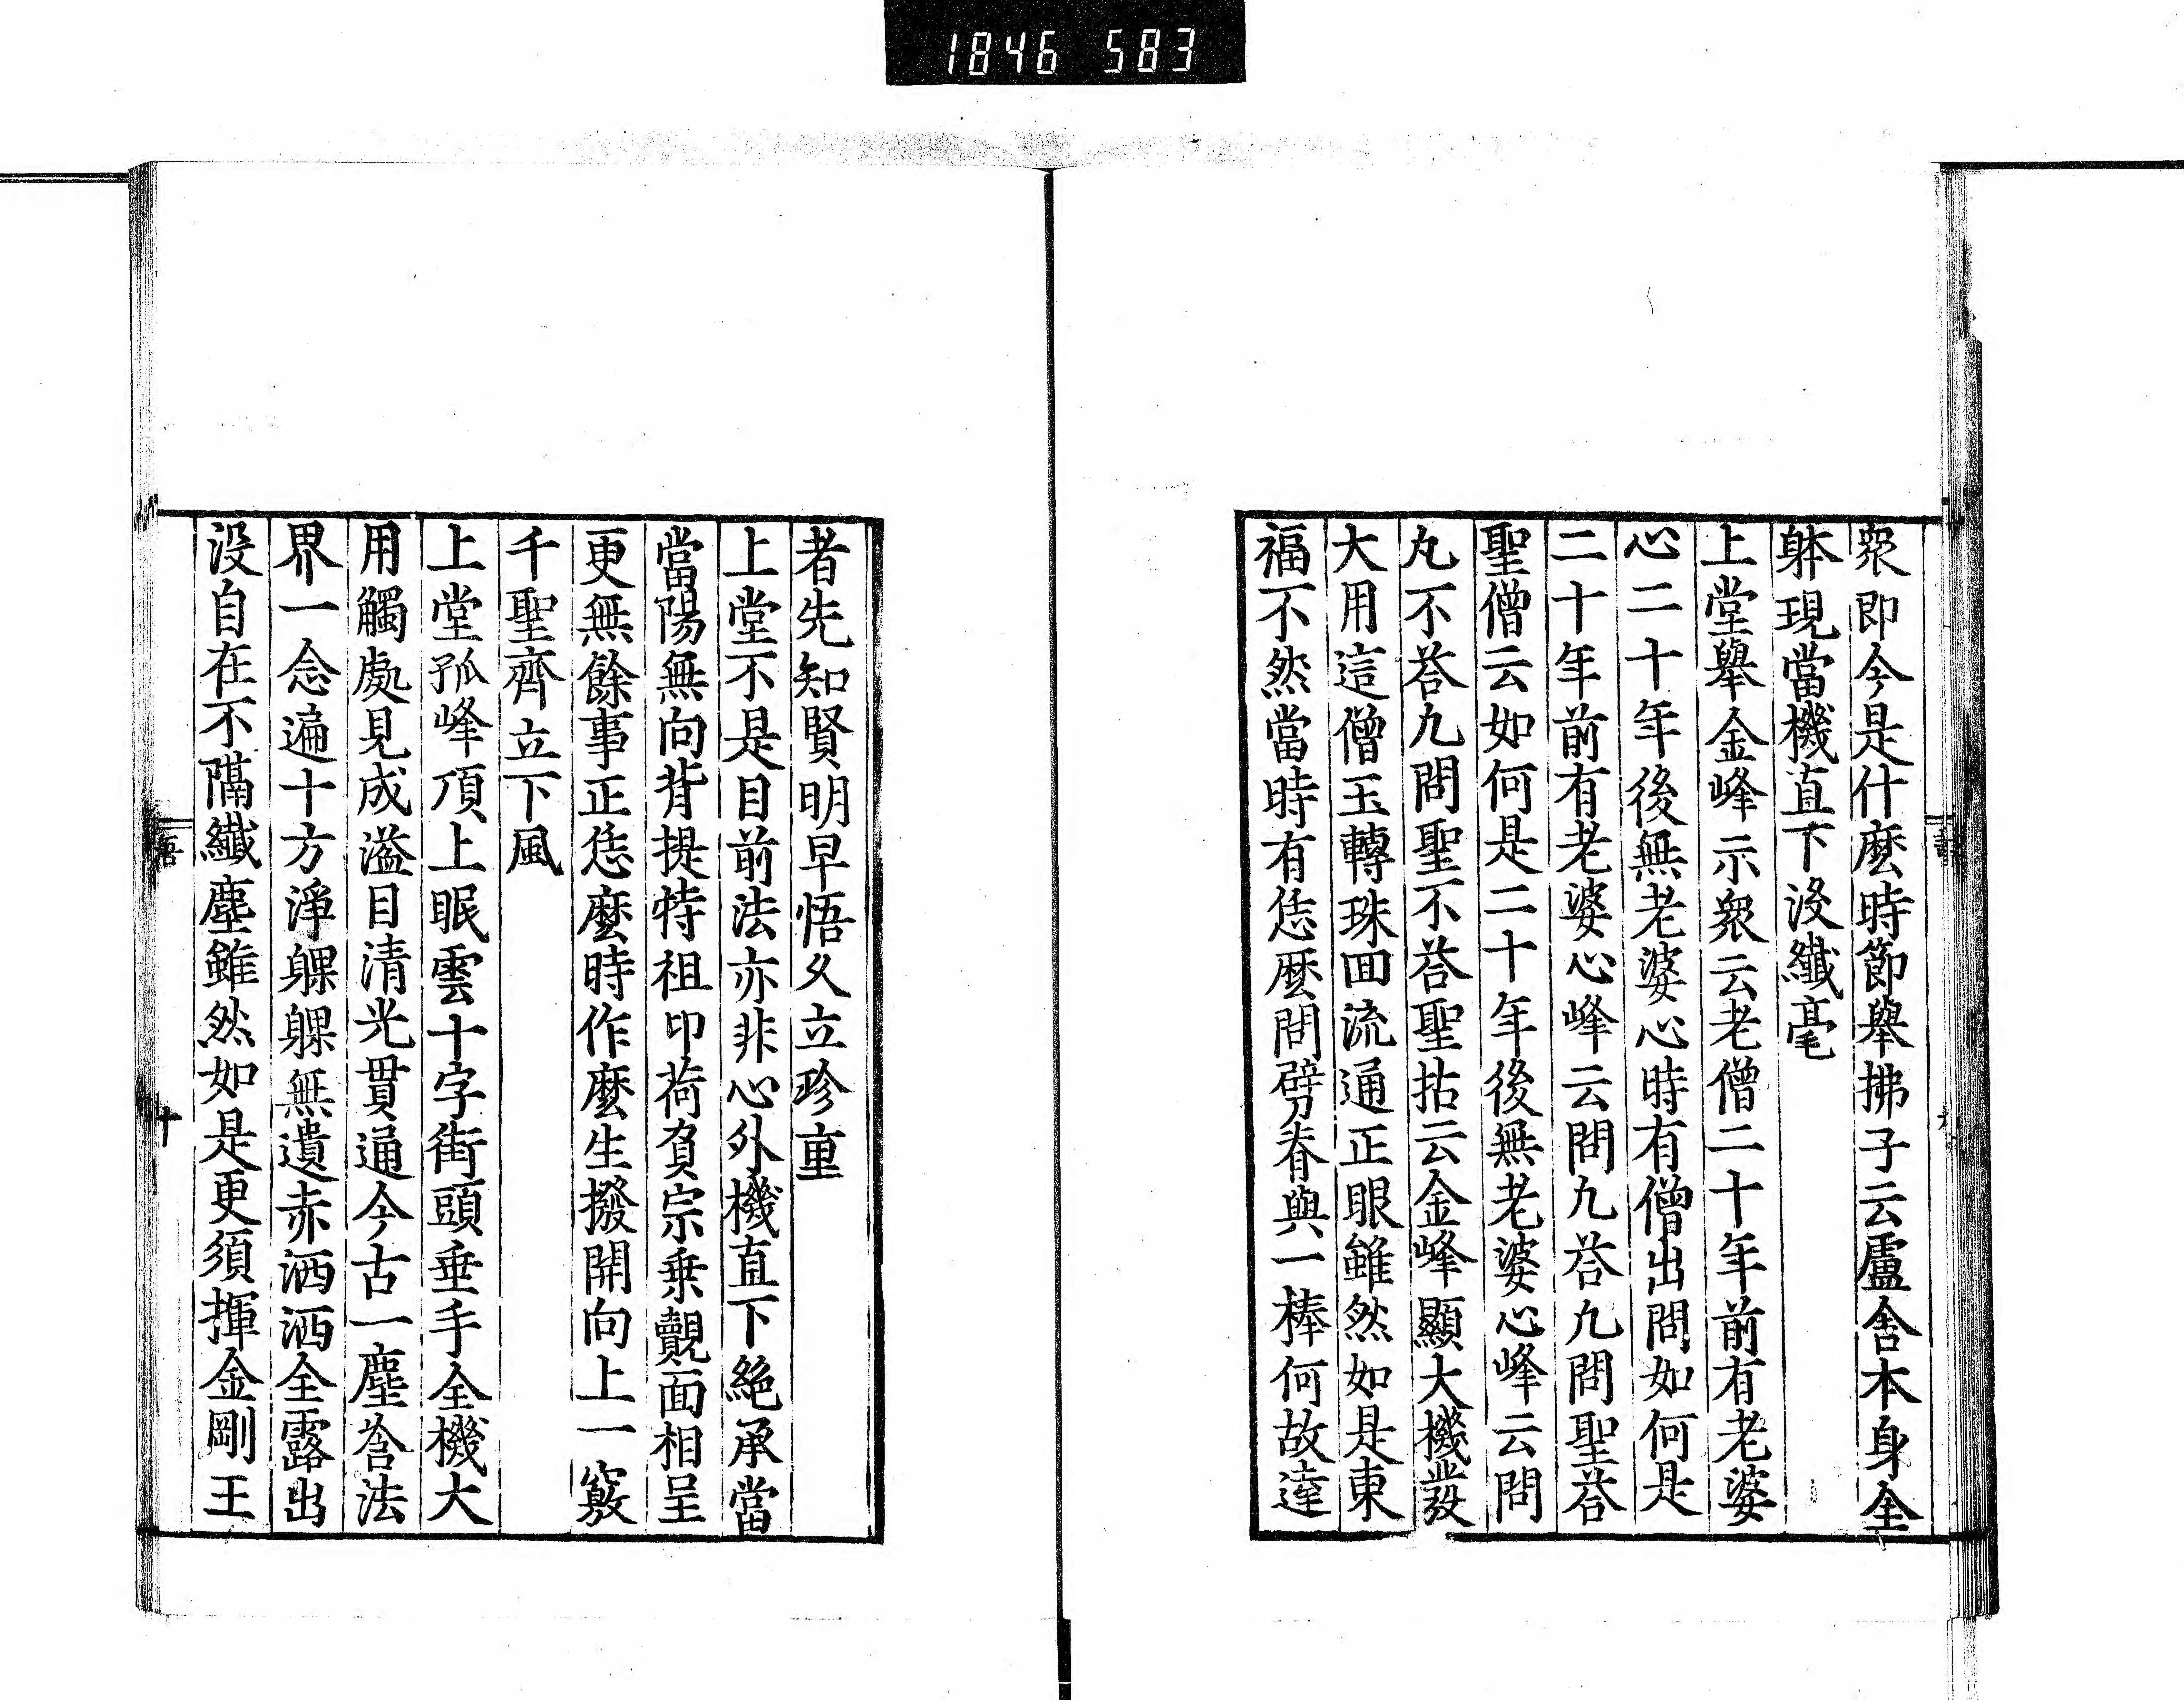 1846 583
衆即今是什麽時節舉拂子云盧舍本身全
躰現當機直下没纖毫
上堂舉金峰示衆云老僧二十年前有老婆
心二十年後無老婆心時有僧出問如何是
二十年前有老婆心峰云問九荅九問聖荅
聖僧云如何是二十年後無老婆心峰云問
九不荅九問聖不荅聖拈云金峰顯大機發
大用這僧玉轉珠回流通正眼雖然如是東
福不然當時有恁麽問劈脊與一棒何故達
者先知賢明早悟久立珍重
上堂不是目前法亦非心外機直下絶承當
當陽無向背提持祖印荷負宗乗覿面相呈
更無餘事正恁麽時作麽生撥開向上一竅
千聖齊立下風
上堂孤峰頂上眠雲十字街頭垂手全機大
用觸處見成溢目清光貫通今古一塵含法
界一念遍十方淨躶躶無遺赤洒洒全露出
没自在不隔纖塵雖然如是更須揮金剛王
十